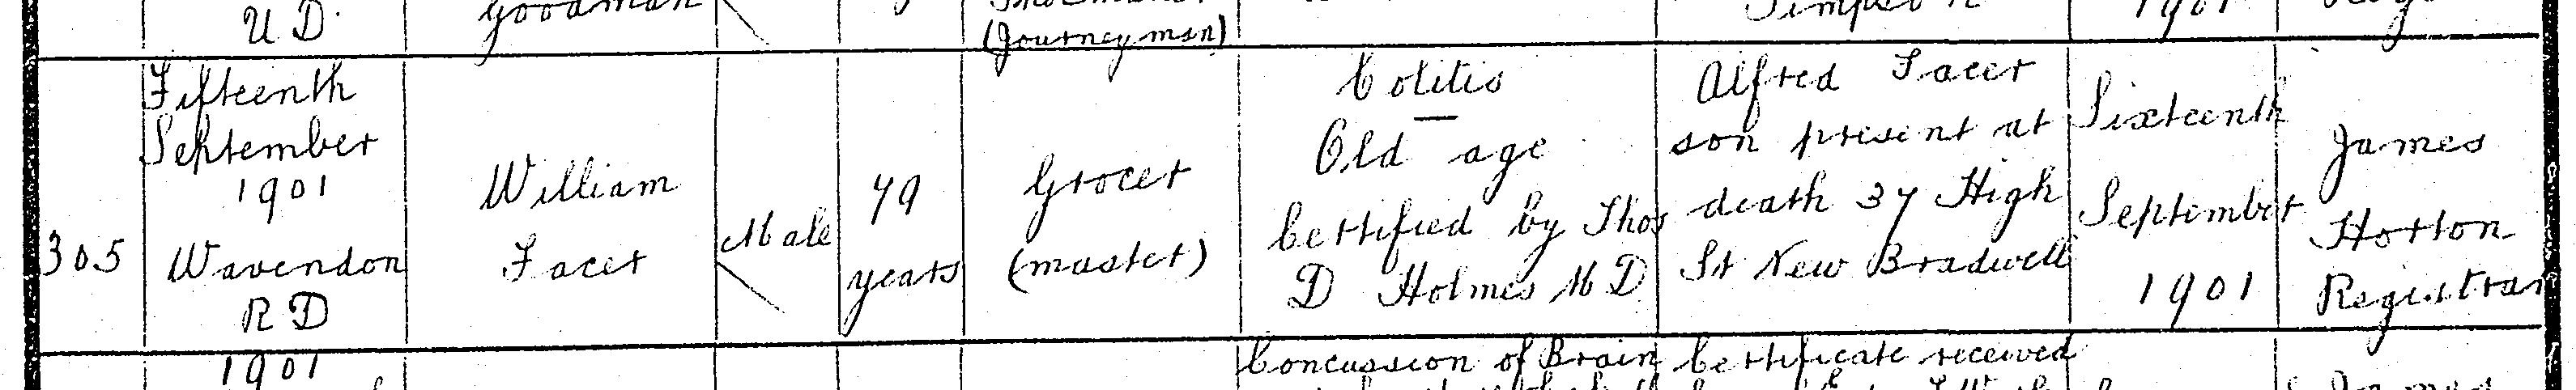 U D
Goodman
(Journeyman)
Simpson
1901
305
Fifteenth
September
1901
Wavendon
R D
William
Facer
Male
79
years
Grocer
(master)
Colitis
Old age
Certified by Thos
D Holmes M D
Alfred Facer
son present at
death 37 High
St New Bradwell
Sixteenth
September
1901
James
Horton
Registrar
1901
Concussion of Brain
Certificate received
James